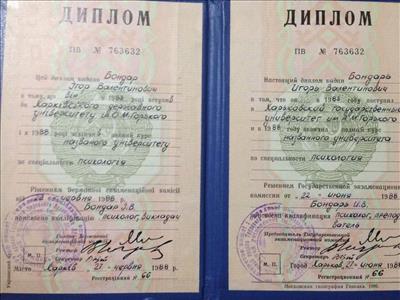 ДИПЛОМ
ПВ № 763632
Цей диплом видано Бондар
Ігор Валентинович
в тому, що він у 198 році вступив
Харківського державного
університету ім. О.М. Горького
і в 1988 році закінчив повний курс
названого університету
за спеціальністю психологія
Рішенням Державної екзаменаційної комісії
від червня 1988
Бондар І.В.
присвоєно кваліфікацію психолог, викладач
М. П.
Місто Харків 21 червня 1988
Реєстраційний № 66
ДИПЛОМ
ПВ № 763632
Настоящий диплом выдан Бондарь
Игорь Валентинович
в том, что он в 198 году поступил
Харьковский государственный
университет им. А.М. Горького
и в 1988 году окончил полный курс
названного университета
по специальности психология
Решением Государственной экзаменационной комиссии
от 22 июня 1988
Бондарь И.В.
присвоена квалификация психолог, препода-
ватель
Председатель Государственной
экзаменационной комиссии
М. П.
Город Харьков, 21 июня 1988
Регистрационный № 66
Московская типография Гознака. 1986.